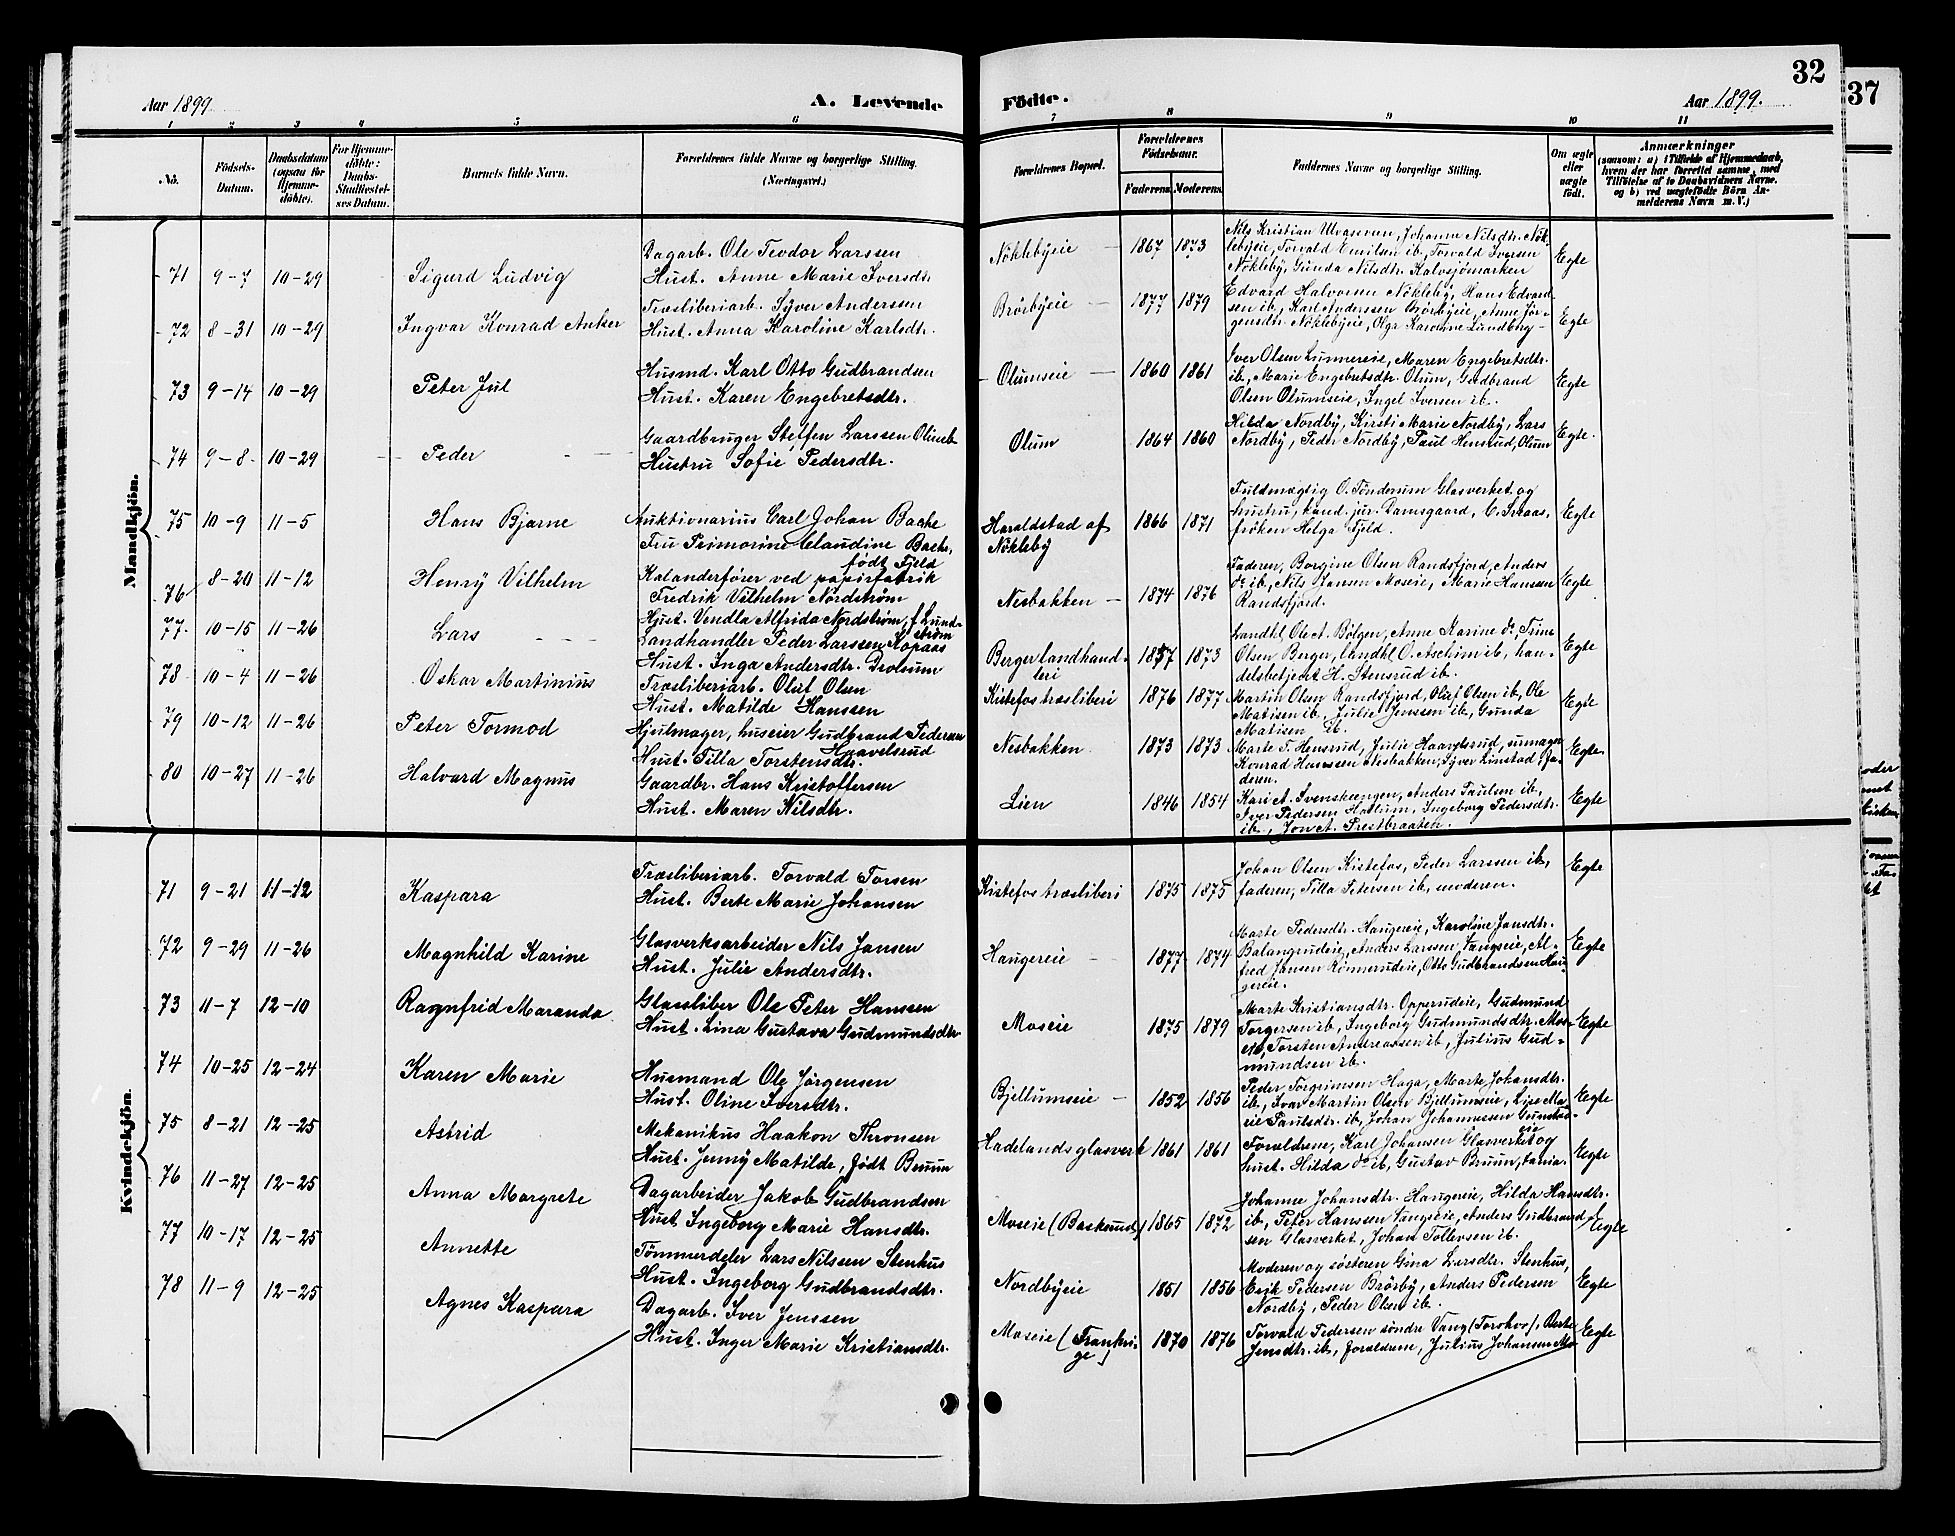 32
37
Aar 1899
A. Levende
Födte.
Aar 1899.
1 2 3 4 5 6 7 8 9 10 11
No.
Födsels-
Datum.
Daabsdatum
(ogsaa for
Hjemme-
döbte).
For Hjemme-
döbte:
Daabs-
Stadfæstel-
ses Datum.
Barnets fulde Navn.
Forældrenes fulde Navne og borgerlige Stilling.
(Næringsvei.)
Forældrenes Bopæl.
Forældrenes
Födselsaar.
Faderens. Moderens.
Faddernes Navne og borgerlige Stilling.
Om ægte
eller
uægte
födt.
Anmærkninger
(saasom: a) i Tilfælde af Hjemmedaab,
hvem der har forrettet samme, med
Tilföielse af to Daabsvidners Navne.
og b) ved uægtefödte Börn An-
melderens Navn m. V.)
Mandkjön.
71 9-7 10-29
Sigurd Ludvig
Dagarb. Ole Teodor Larssen
Hust. Anne Marie Iversdtr
Nöklebyeie 1867 1873
Nils Kristian Ulvasveen, Johanne Nilsdtr. Nök-
lebyeie, Torvald Emilsen ib., Torvald Iversen
Nökleby, Gunda Nilsdtr. Kalvsjömarken
Egte
72 8-31 10-29
Ingvar Konrad Anker
Træsliberiarb. Syver Andersen
Hust. Anna Karoline Karlsdtr.
Brörbyeie 1877 1879
Edvard Halvorsen Nökleby, Hans Edvard-
sen ib., Karl Anderssen Brörbyeie, Anne Jör-
gensdtr. Nöklebyeie, Olga Karenne Lundberg
Egte
73 9-14 10-29
Peter Jul
Husmd. Karl Otto Gudbrandsen
Hust. Karen Engebretsdtr.
Olumseie 1860 1861
Iver Olsen Lunnereie, Maren Engebretsdtr.
ib., Marie Engebretsdtr. Olum, Gudbrand
Olsen Olumseie, Ingel Iversen ib.
Egte
74 9-8 10-29
Peder
Gaardbruger Steffen Larssen Olum
Hustru Sofie Pedersdtr.
Olum 1864 1860
Hilda Nordby, Kirsti Marie Nordby, Lars
Nordby, Peder Nordby, Paul Hensrud, Olum
Egte.
75 10-9 11-5
Hans Bjarne
Auktionarius Carl Johan Bache
Fru Primorine Claudine Bache,
født Fjeld
Haraldstad af
Nökleby
1866 1871
Fuldmægtig O. Tönderum Glasverket og
hustru, kand. jur. Damsgaard, C. Svaas,
fröken Helga Fjeld.
Egte
76 8-20 11-12
Henry Vilhelm
Kalanderfører ved papirfabrik
Fredrik Vilhelm Nordstrøm
Hust. Vendla Alfrida Nordstrøm, f. Lund-
strøm
Nesbakken 1874 1876
Faderen, Borgine Olsen Randsfjord, Anders
do ib., Nils Jansen Moseie, Marie Hansen
Randsfjord.
Egte
77. 10-15 11-26
Lars
Landhandler Peder Larssen Kopaas
Hust. Inga Andersdtr. Drolsum
Berger landhand-
leri
1857 1873
Landhl. Ole A. Bölgen, Anne Karine do, Trine
Olsen Berger, landhl. O. Aschim ib., han-
delsbetjent H. Stensrud ib.
Egte
78 10-4 11-26
Oskar Martinius
Træsliberiarb. Oluf Olsen
Hust. Matilde Hanssen
Kistefos træsliberi 1876 1877
Martin Olsen Randsfjord, Oluf Olsen ib., Ole
Matisen ib., Julie Jenssen ib., Gunda
Matisen ib.
Egte
79 10-12 11-26
Peter Tormod
Hjulmager, huseier Gudbrand Pedersen
Haavelsrud
Hust. Tilla Torstensdtr.
Nesbakken 1873 1873
Marte T. Hensrud, Julie Haavelsrud, urmager
Konrad Hanssen Nesbakken, Syver Linstad, fa-
deren.
Egte
80 10-27 11-26
Halvard Magnus
Gaardbr. Hans Kristoffersen
Hust. Maren Nilsdtr.
Lien 1846 1854
Kari A. Svenskængen, Anders Paulsen ib.,
Iver Pedersen Hallum, Ingeborg Pedersdtr.
ib., Jon A. Prestbraaten.
Egte
Kvindekjön.
71 9-21 11-12
Kaspara
Træsliberiarb. Torvald Torsen
Hust. Berte Marie Johansen
Kistefos træsliberi 1875 1875
Johan Olsen Kistefos, Peder Larssen ib.,
faderen, Tilla Petersen ib., moderen.
Egte
72 9-29 11-26
Magnhild Karine
Glasverksarbeider Nils Jansen
Hust. Julie Andersdtr.
Haugereie 1877 1874
Marte Pedersdtr. Haugereie, Karoline Jansdtr.
Balangrudeie, Anders Larssen Vangseie, Al-
fred Jansen Rönnerudeie, Otto Gudbrandsen Hau-
gereie.
Egte
73 11-7 12-10
Ragnfrid Maranda
Glassliber Ole Peter Hanssen
Hust. Lina Gustava Gudmundsdtr
Moseie 1875 1879
Marte Kristiansdtr. Opperudeie, Gudmund
Torgersen ib., Ingeborg Gudmundsdtr. Mos-
eie, Torsten Andreassen ib., Julius Gud-
mundsen ib.
Egte
74 10-25 12-24
Karen Marie
Husmand Ole Jörgensen
Hust. Oline Iversdtr.
Bjellumseie 1852 1856
Peder Torgrimsen Haga, Marte Johansdtr.
ib., Ivar Martin Olsen Bjellumseie, Lise Ma-
rie Paulsdtr. ib., Johan Johannessen
Egte
75 8-21 12-25
Astrid
Mekanikus Haakon Thronsen
Hust. Jenny Matilde, født Bruun
Hadelands glasverk 1861 1861
Forældrene, Karl Johansen Glasverket og
hust. Hilda do ib., Gustav Bruun,
Egte
76 11-27 12-25
Anna Margrete
Dagarbeider Jakob Gudbrandsen
Hust. Ingeborg Marie Hansdtr.
Moseie (Baskerud) 1865 1872
Johanne Johansdtr. Haugereie, Hilda Hansdtr.
ib., Peter Hanssen Vangseie, Anders Gudbrand-
sen Glasverket, Johan Tollevsen ib.
Egte
77 10-17 12-25
Annette
Tömmerdeler Lars Nilsen Stenhus
Hust. Ingeborg Gudbrandsdtr.
Nordbyeie 1851 1856
Moderen og søsteren Gina Larsdtr. Stenhus,
Erik Pedersen Brörby, Anders Pedersen
Nordby, Peder Olsen ib.
Egte
78 11-9 12-25
Agnes Kaspara
Dagarb. Iver Jenssen
Hust. Inger Marie Kristiansdtr.
Moseie (Frankri-
ge)
1870 1876
Torvald Pedersen söndre Vang (Torshov), Berte
Jensdtr. ib., forældrene, Julius Johansen Mo
Egte